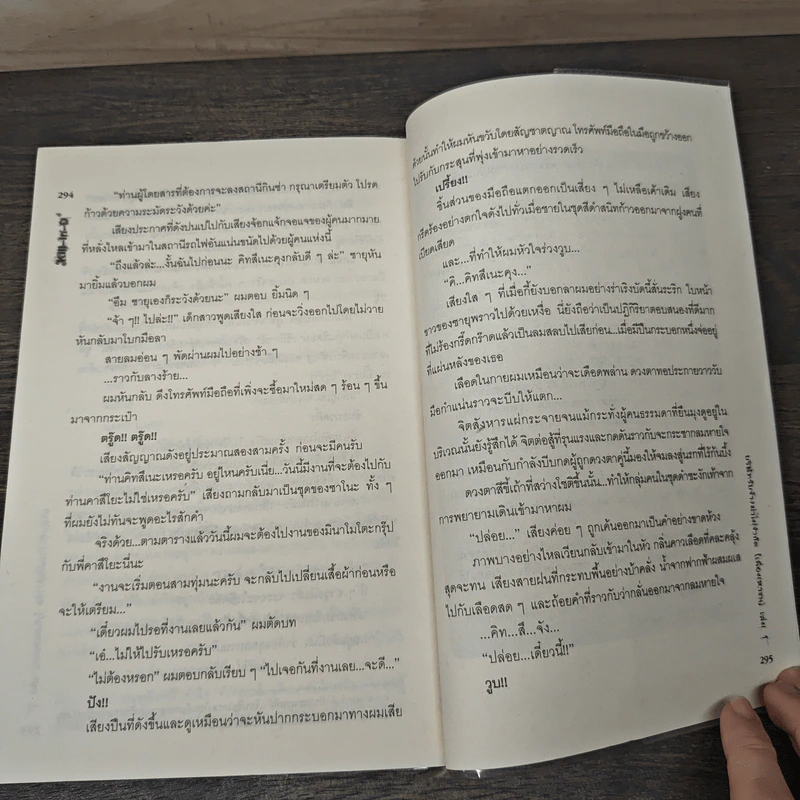 294
“ท่านผู้โดยสารที่ต้องการจะลงสถานีกินซ่า กรุณาเตรียมตัว โปรด
ก้าวด้วยความระมัดระวังด้วยค่ะ”
เสียงประกาศที่ดังปนเปไปกับเสียงจ้อกแจ้กจอแจของผู้คนมากมาย
ที่หลั่งไหลเข้ามาในสถานีรถไฟอันแน่นขนัดไปด้วยผู้คนแห่งนี้
“ถึงแล้วล่ะ...งั้นฉันไปก่อนนะ คิทสึเนะคุงกลับดี ๆ ล่ะ” ซายุหัน
มายิ้มแล้วบอกผม
“อืม ซายุเองก็ระวังด้วยนะ” ผมตอบ ยิ้มนิด ๆ
“จ้า ๆ!! ไปล่ะ!!” เด็กสาวพูดเสียงใส ก่อนจะวิ่งออกไปโดยไม่วาย
หันกลับมาโบกมือลา
สายลมอ่อน ๆ พัดผ่านผมไปอย่างช้า ๆ
...ราวกับลางร้าย...
ผมหันกลับ ดึงโทรศัพท์มือถือที่เพิ่งจะซื้อมาใหม่สด ๆ ร้อน ๆ ขึ้น
มาจากกระเป๋า
ตรู๊ด!! ตรู๊ด!!
เสียงสัญญาณดังอยู่ประมาณสองสามครั้ง ก่อนจะมีคนรับ
“ท่านคิทสึเนะเหรอครับ อยู่ไหนครับเนี่ย...วันนี้มีงานที่จะต้องไปกับ
ท่านคาสึโยะไม่ใช่เหรอครับ” เสียงถามกลับมาเป็นชุดของซาโนะ ทั้ง ๆ
ที่ผมยังไม่ทันจะพูดอะไรสักคำ
จริงด้วย...ตามตารางแล้ววันนี้ผมจะต้องไปงานของมินาโมโตะกรุ๊ป
กับพี่คาสึโยะนี่นะ
“งานจะเริ่มตอนสามทุ่มนะครับ จะกลับไปเปลี่ยนเสื้อผ้าก่อนหรือ
จะให้เตรียม...”
“เดี๋ยวผมไปรอที่งานเลยแล้วกัน” ผมตัดบท
“เอ๋...ไม่ให้ไปรับเหรอครับ”
“ไม่ต้องหรอก” ผมตอบกลับเรียบ ๆ “ไปเจอกันที่งานเลย...จะดี...”
ปัง!!
เสียงปืนที่ดังขึ้นและดูเหมือนว่าจะหันปากกระบอกมาทางผมเสีย
ด้วยนั้นทำให้ผมหันขวับโดยสัญชาตญาณ โทรศัพท์มือถือในมือถูกขว้างออก
ไปรับกับกระสุนที่พุ่งเข้ามาหาอย่างรวดเร็ว
เปรี้ยง!!
ชิ้นส่วนของมือถือแตกออกเป็นเสี่ยง ๆ ไม่เหลือเค้าเดิม เสียง
กรีดร้องอย่างตกใจดังไปทั่วเมื่อชายในชุดสีดำสนิทก้าวออกมาจากฝูงคนที่
เบียดเสียด
และ...ที่ทำให้ผมหัวใจร่วงวูบ...
“คิ...คิทสึเนะคุง...”
เสียงใส ๆ ที่เมื่อกี้ยังบอกลาผมอย่างร่าเริงบัดนี้สั่นระริก ใบหน้า
ขาวของซายุพราวไปด้วยเหงื่อ นี่ยังถือว่าเป็นปฏิกิริยาตอบสนองที่ดีมาก
ที่ไม่ร้องกรี๊ดกร๊าดแล้วเป็นลมสลบไปเสียก่อน...เมื่อมีปืนกระบอกหนึ่งจ่ออยู่
ที่แผ่นหลังของเธอ
เลือดในกายผมเหมือนว่าจะเดือดพล่าน ดวงตาทอประกายวาววับ
มือกำแน่นราวจะบีบให้แตก...
จิตสังหารแผ่กระจายจนแม้กระทั่งผู้คนธรรมดาที่ยืนมุงดูอยู่ใน
บริเวณนั้นยังรู้สึกได้ จิตต่อสู้ที่รุนแรงและกดดันราวกับจะกระชากลมหายใจ
ออกมา เหมือนกับกำลังบีบกดผู้ถูกดวงตาคู่นี้มองให้จมลงสู่นรกที่ไร้ก้นบึ้ง
ดวงตาสีขี้เถ้าที่สว่างโชติขึ้นนั้น...ทำให้กลุ่มคนในชุดดำชะงักเท้าจาก
การพยายามเดินเข้ามาหาผม
“ปล่อย...” เสียงค่อย ๆ ถูกเค้นออกมาเป็นคำอย่างขาดห้วง
ภาพบางอย่างไหลเวียนกลับเข้ามาในหัว กลิ่นคาวเลือดที่คละคลุ้ง
สุดจะทน เสียงสายฝนที่กระทบพื้นอย่างบ้าคลั่ง น้ำจากฟากฟ้าผสมผเส
ไปกับเลือดสด ๆ และถ้อยคำที่ราวกับว่ากลั่นออกมาจากลมหายใจ
...คิท...สึ...จัง...
“ปล่อย...เดี๋ยวนี้!!”
วูบ!!
295